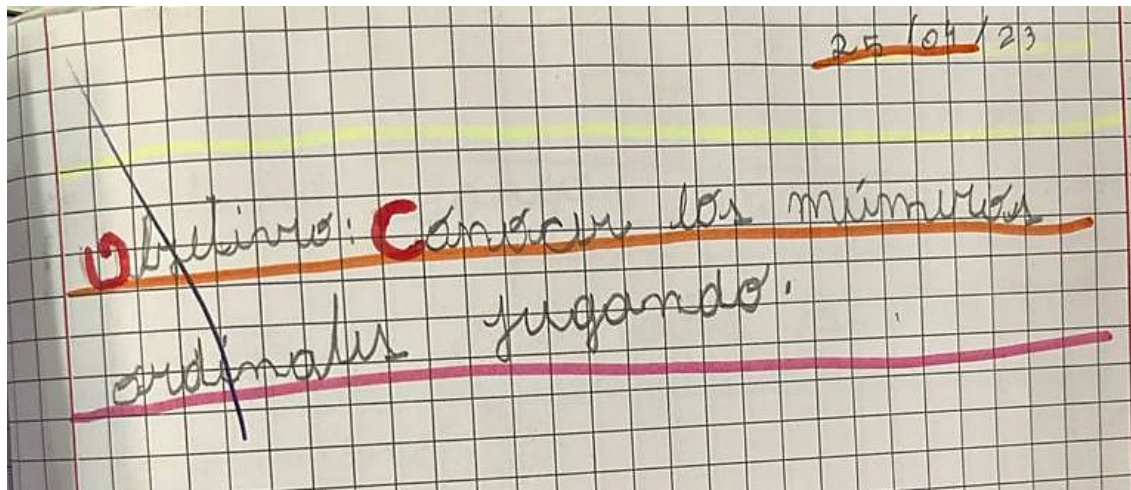 25/04/23
Objetivo: Conocer los números
ordinales jugando.